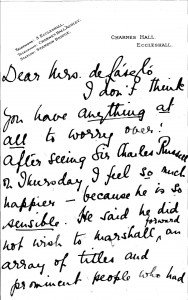 CHARNES HALL
ECCLESHALL.
Dear Mrs. de László
I don't think
you have anything at
all to worry over!
After seeing Sir Charles Russell
on Thursday I feel so much
happier – because he is so
sensible. He said he did
not wish to marshall, forward an
array of titles and
prominent people who had